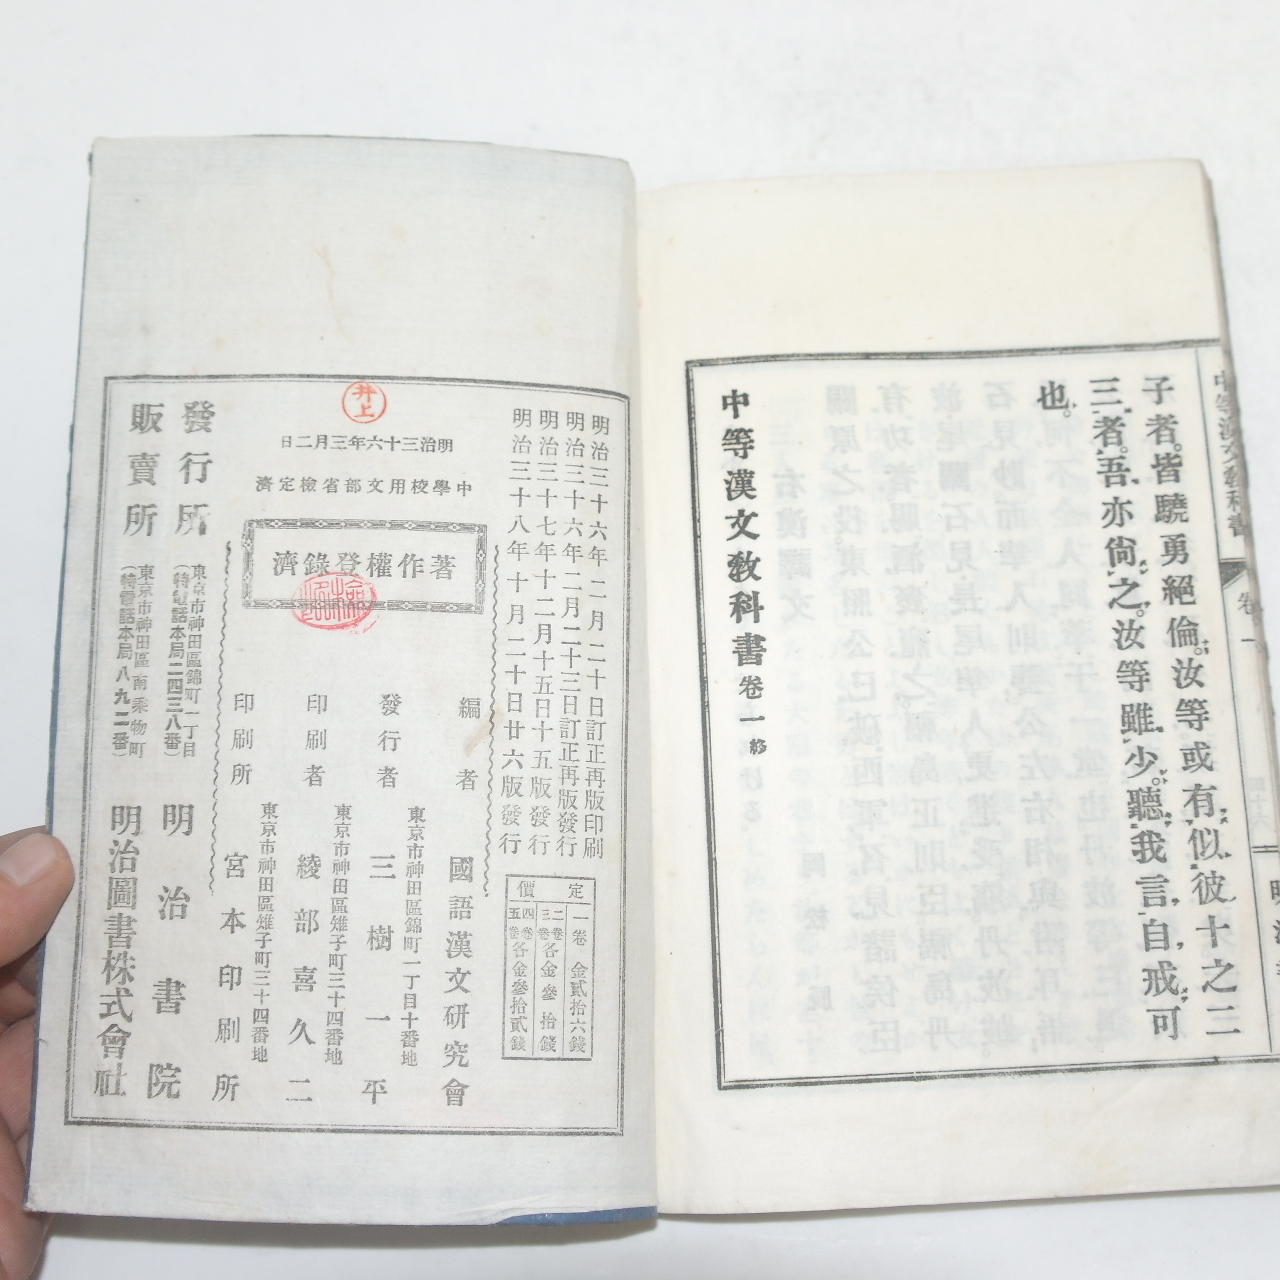 中等漢文敎科書
卷一
子者。皆驍勇絕倫。汝等或有似彼十之二
三者。吾亦尙之。汝等雖少。聽我言、自戒、可
也。
中等漢文敎科書卷一終
明治三十六年二月二十日訂正再版印刷
明治三十六年二月二十三日訂正再版發行
明治三十七年十二月十五日十五版發行
明治三十八年十月二十日廿六版發行
定價
一卷 金貳拾六錢
二卷三卷各金參拾錢
四卷五卷各金參拾貳錢
井上
明治三十六年三月二日
中學校用文部省檢定濟
著作權登錄濟
編者 國語漢文研究會
東京市神田區錦町一丁目十番地
發行者 三樹一平
東京市神田區雉子町三十四番地
印刷者 綾部喜久二
東京市神田區雉子町三十四番地
印刷所 宮本印刷所
發行所 東京市神田區錦町一丁目(特電話本局二四三八番) 明治書院
販賣所 東京市神田區南乘物町(特電話本局八九二番) 明治圖書株式會社